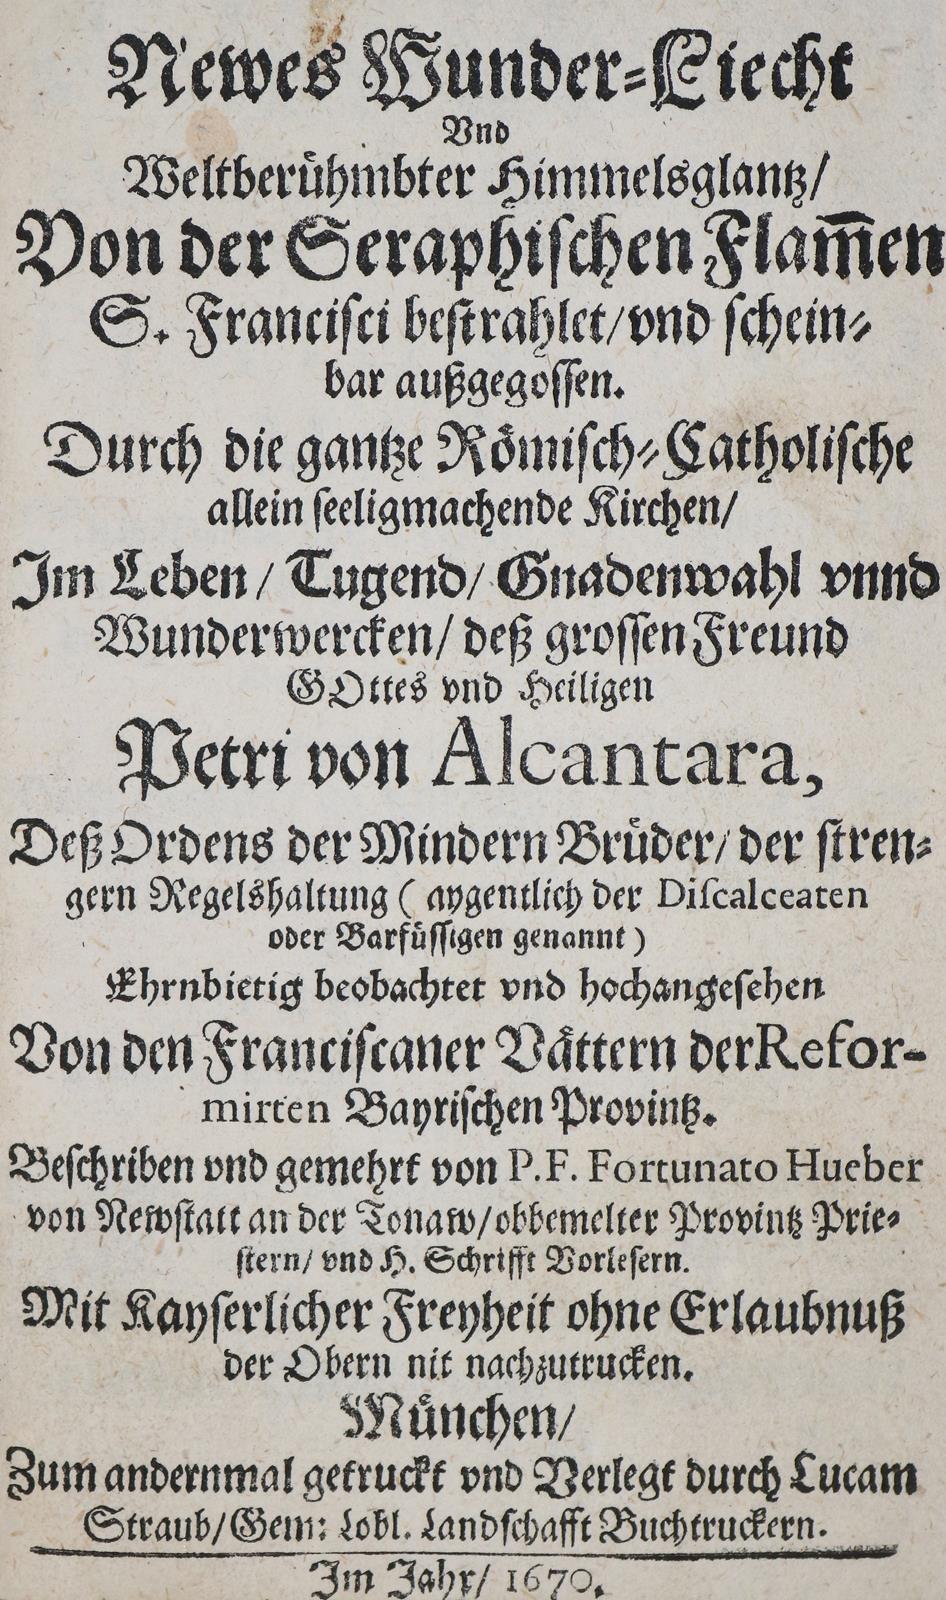 Newes Wunder-Liecht
Vnd
Weltberühmbter Himmelsglantz/
Von der Seraphischen Flam̅en
S. Francisci bestrahlet/vnd schein-
bar außgegossen.
Durch die gantze Römisch-Catholische
allein seeligmachende Kirchen/
Im Leben/ Tugend/ Gnadenwahl vnnd
Wunderwercken/ deß grossen Freund
GOttes vnd Heiligen
Petri von Alcantara,
Deß Ordens der Mindern Brüder/ der stren-
gern Regelshaltung ( aygentlich der Discalceaten
oder Barfüssigen genannt )
Ehrnbietig beobachtet vnd hochangesehen
Von den Franciscaner Vättern der Refor-
mirten Bayrischen Provintz.
Beschriben vnd gemehrt von P.F. Fortunato Hueber
von Newstatt an der Tonaw/obbemelter Provintz Prie-
stern/ vnd H. Schrifft Vorlesern.
Mit Kayserlicher Freyheit ohne Erlaubnuß
der Obern nit nachzutrucken.
München/
Zum andernmal getruckt vnd Verlegt durch Lucam
Straub/Gem: Lobl. Landschafft Buchtruckern.
Im Jahr/ 1670.